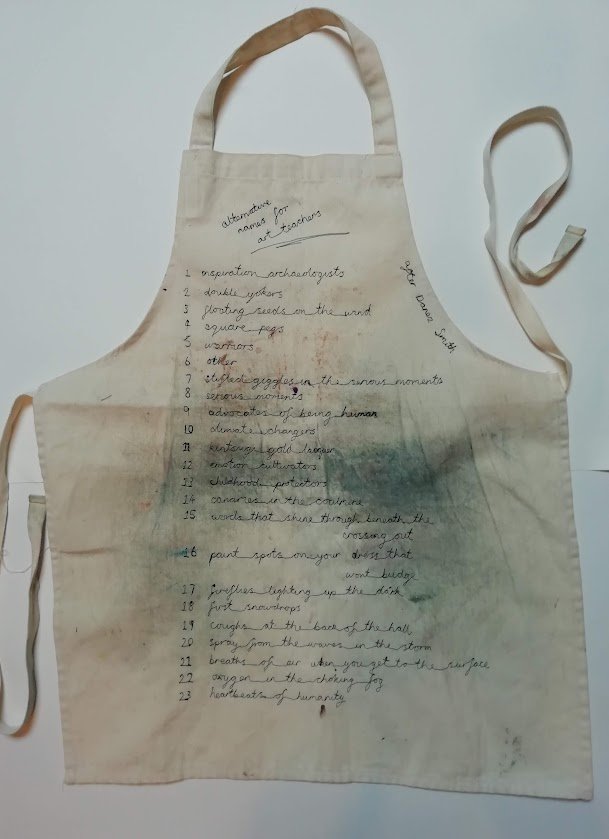 alternative
names for
art teachers
after Danez Smith
1 inspiration archaeologists
2 double yokers
3 floating seeds on the wind
4 square pegs
5 warriors
6 other
7 stifled giggles in the serious moments
8 serious moments
9 advocates of being human
10 climate changers
11 kintsugi gold laquer
12 emotion cultivators
13 childhood protectors
14 canaries in the coalmine
15 words that shine through beneath the
crossing out
16 paint spots on your dress that
wont budge
17 fireflies lighting up the dark
18 first snowdrops
19 coughs at the back of the hall
20 spray from the waves in the storm
21 breaths of air when you get to the surface
22 oxygen in the choking fog
23 heartbeats of humanity